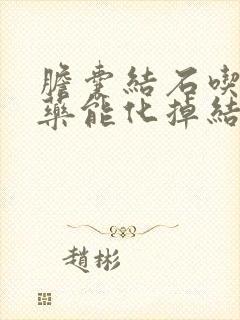 膽囊結石喫
藥能化掉結
趙彬